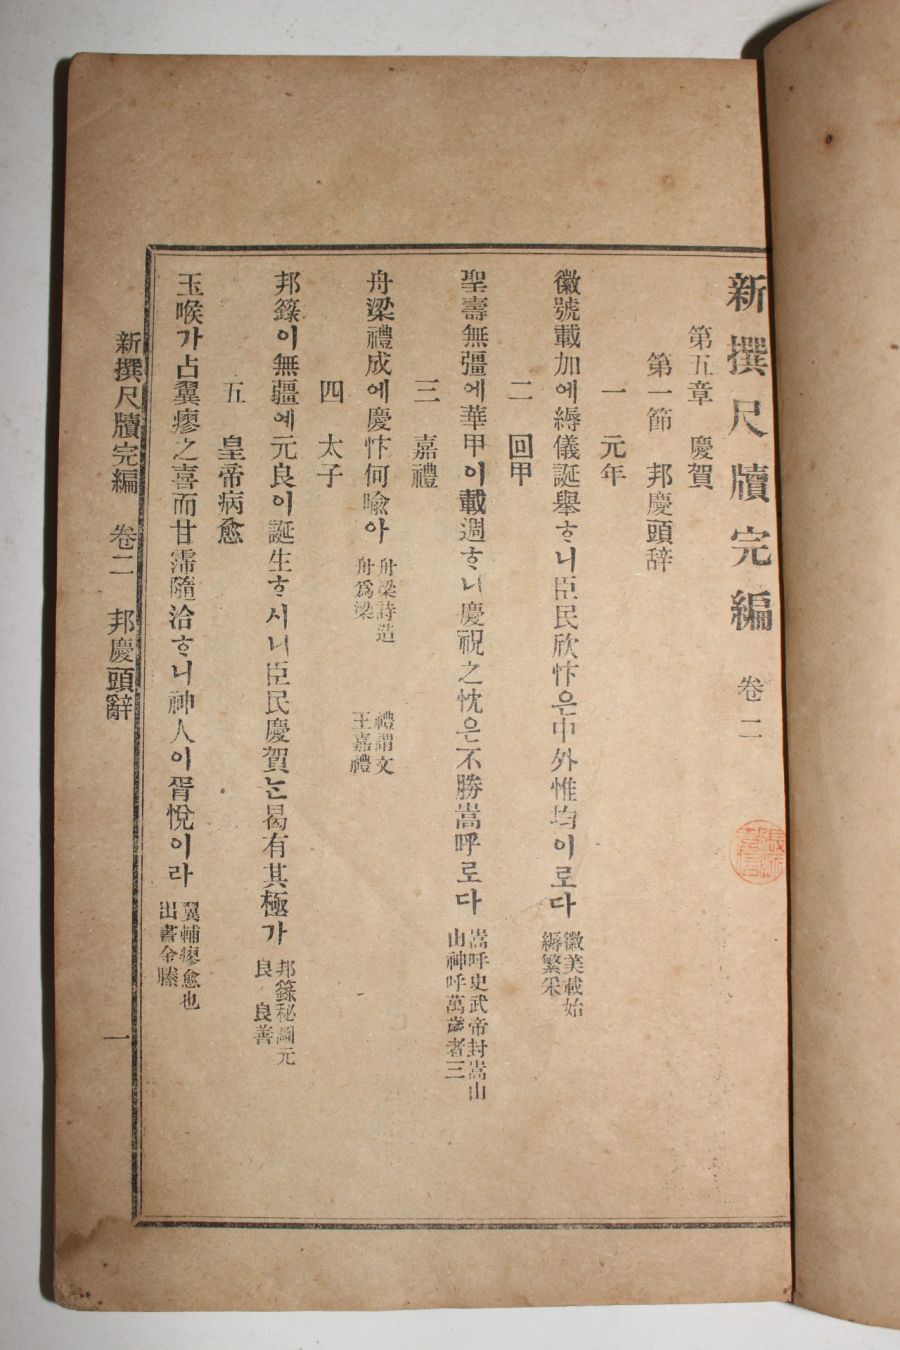 新撰尺牘完編 卷二
第五章 慶賀
第一節 邦慶頭辞
一 元年
徽號載加에縟儀誕舉ᄒᆞ니臣民欣忭은中外惟均이로다 徽美載始
縟繁采
二 回甲
聖壽無彊에華甲이載週ᄒᆞ니慶祝之忱은不勝嵩呼로다 嵩呼史武帝封嵩山
山神呼萬歲者三
三 嘉禮
舟梁禮成에慶忭何喩아 舟梁詩造
舟爲梁 禮謂文
王嘉禮
四 太子
邦籙이無疆에元良이誕生ᄒᆞ시니臣民慶賀ᄂᆞᆫ曷有其極가 邦籙秘圖元
良 良善
五 皇帝病愈
玉喉가占翼瘳之喜而甘霈隨洽ᄒᆞ니神人이胥悅이라 翼輔瘳愈也
出書金縢
新撰尺牘完編 卷二 邦慶頭辭 一